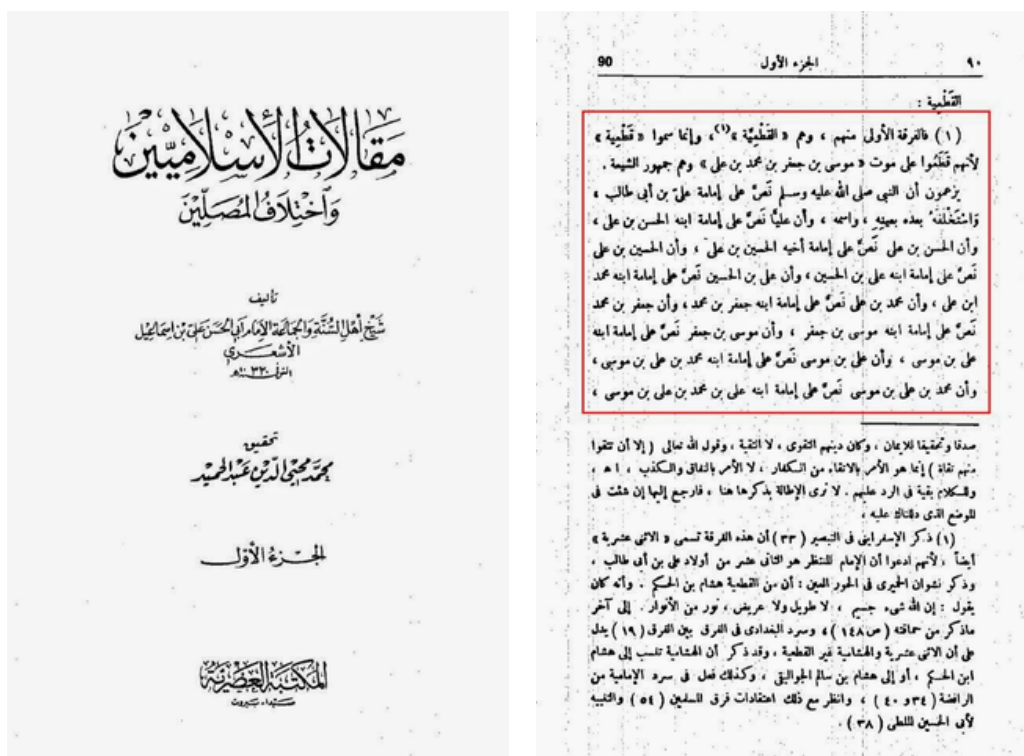 مقالات الأسلاميين
واختلاف المصلين
تأليف
شيخ أهل السنة والجماعة الإمام أبي الحسن علي بن اسماعيل
الأشعري
المتوفى ٣٣٠هـ
تحقيق
محمد محيي الدين عبد الحميد
الجزء الأول
المكتبة العصرية
صيدا - بيروت
90 الجزء الأول ٩٠
القطعية :
(١) فالفرقة الأولى منهم ، وهم « القَطْعِيَّة »(١)، وإنما سموا « قَطْعِية »
لأنهم قَطَعُوا على موت « موسى بن جعفر بن محمد بن على » وهم جمهور الشيعة .
يزعمون أن النبى صلى الله عليه وسلم نَصَّ على إمامة علىّ بن أبى طالب ،
وَاسْتَخْلَفَهُ بعده بعينهِ ، واسمه ، وأن عليًّا نَصَّ على إمامة ابنه الحسن بن على ،
وأن الحسن بن على نَصَّ على إمامة أخيه الحسين بن على ، وأن الحسين بن على
نَصَّ على إمامة ابنه على بن الحسين ، وأن على بن الحسين نَصَّ على إمامة ابنه محمد
ابن على ، وأن محمد بن على نَصَّ على إمامة ابنه جعفر بن محمد ، وأن جعفر بن محمد
نَصَّ على إمامة ابنه موسى بن جعفر ، وأن موسى بن جعفر نَصَّ على إمامة ابنه
على بن موسى ، وأن على بن موسى نَصَّ على إمامة ابنه محمد بن على بن موسى ،
وأن محمد بن على بن موسى نَصَّ على إمامة ابنه على بن محمد بن على بن موسى ،
صدقا وتحقيقا للايمان ، وكان دينهم التقوى ، لا التقية ، وقول الله تعالى ( إلا أن تتقوا
منهم تقاة ) إنما هو الأمر بالاتقاء من الكفار ، لا الأمر بالنفاق والكذب ، ا هـ ،
وللكلام بقية فى الرد عليهم . لا نرى الإطالة بذكرها هنا ، فارجع إليها إن شئت فى
الموضع الذى دللناك عليه ،
(١) ذكر الإسفراينى فى التبصير ( ٣٣ ) أن هذه الفرقة تسمى « الاثنى عشرية »
أيضاً ، لأنهم ادعوا أن الإمام المنتظر هو الثانى عشر من أولاد على بن أبى طالب ،
وذكر نشوان الحميرى فى الحور العين : أن من القطعية هشام بن الحكم . وأنه كان
يقول : إن الله شىء جسيم ، لا طويل ولا عريض ، نور من الأنوار . إلى آخر
ماذكر من حماقته ( ص ١٤٨ ) ، وسرد البغدادى فى الفرق بين الفرق ( ١٩ ) يدل
على أن الاثنى عشرية والهشامية غير القطعية ، وقد ذكر أن الهشامية تنسب إلى هشام
ابن الحكم ، أو إلى هشام بن سالم الجواليقى ، وكذلك فعل فى سرد الإمامية من
الرافضة ( ٣٤ و ٤٠ ) ، وانظر مع ذلك اعتقادات فرق المسلمين ( ٥٤ ) والتنبيه
لأبى الحسين الملطى ( ٣٨ ) .